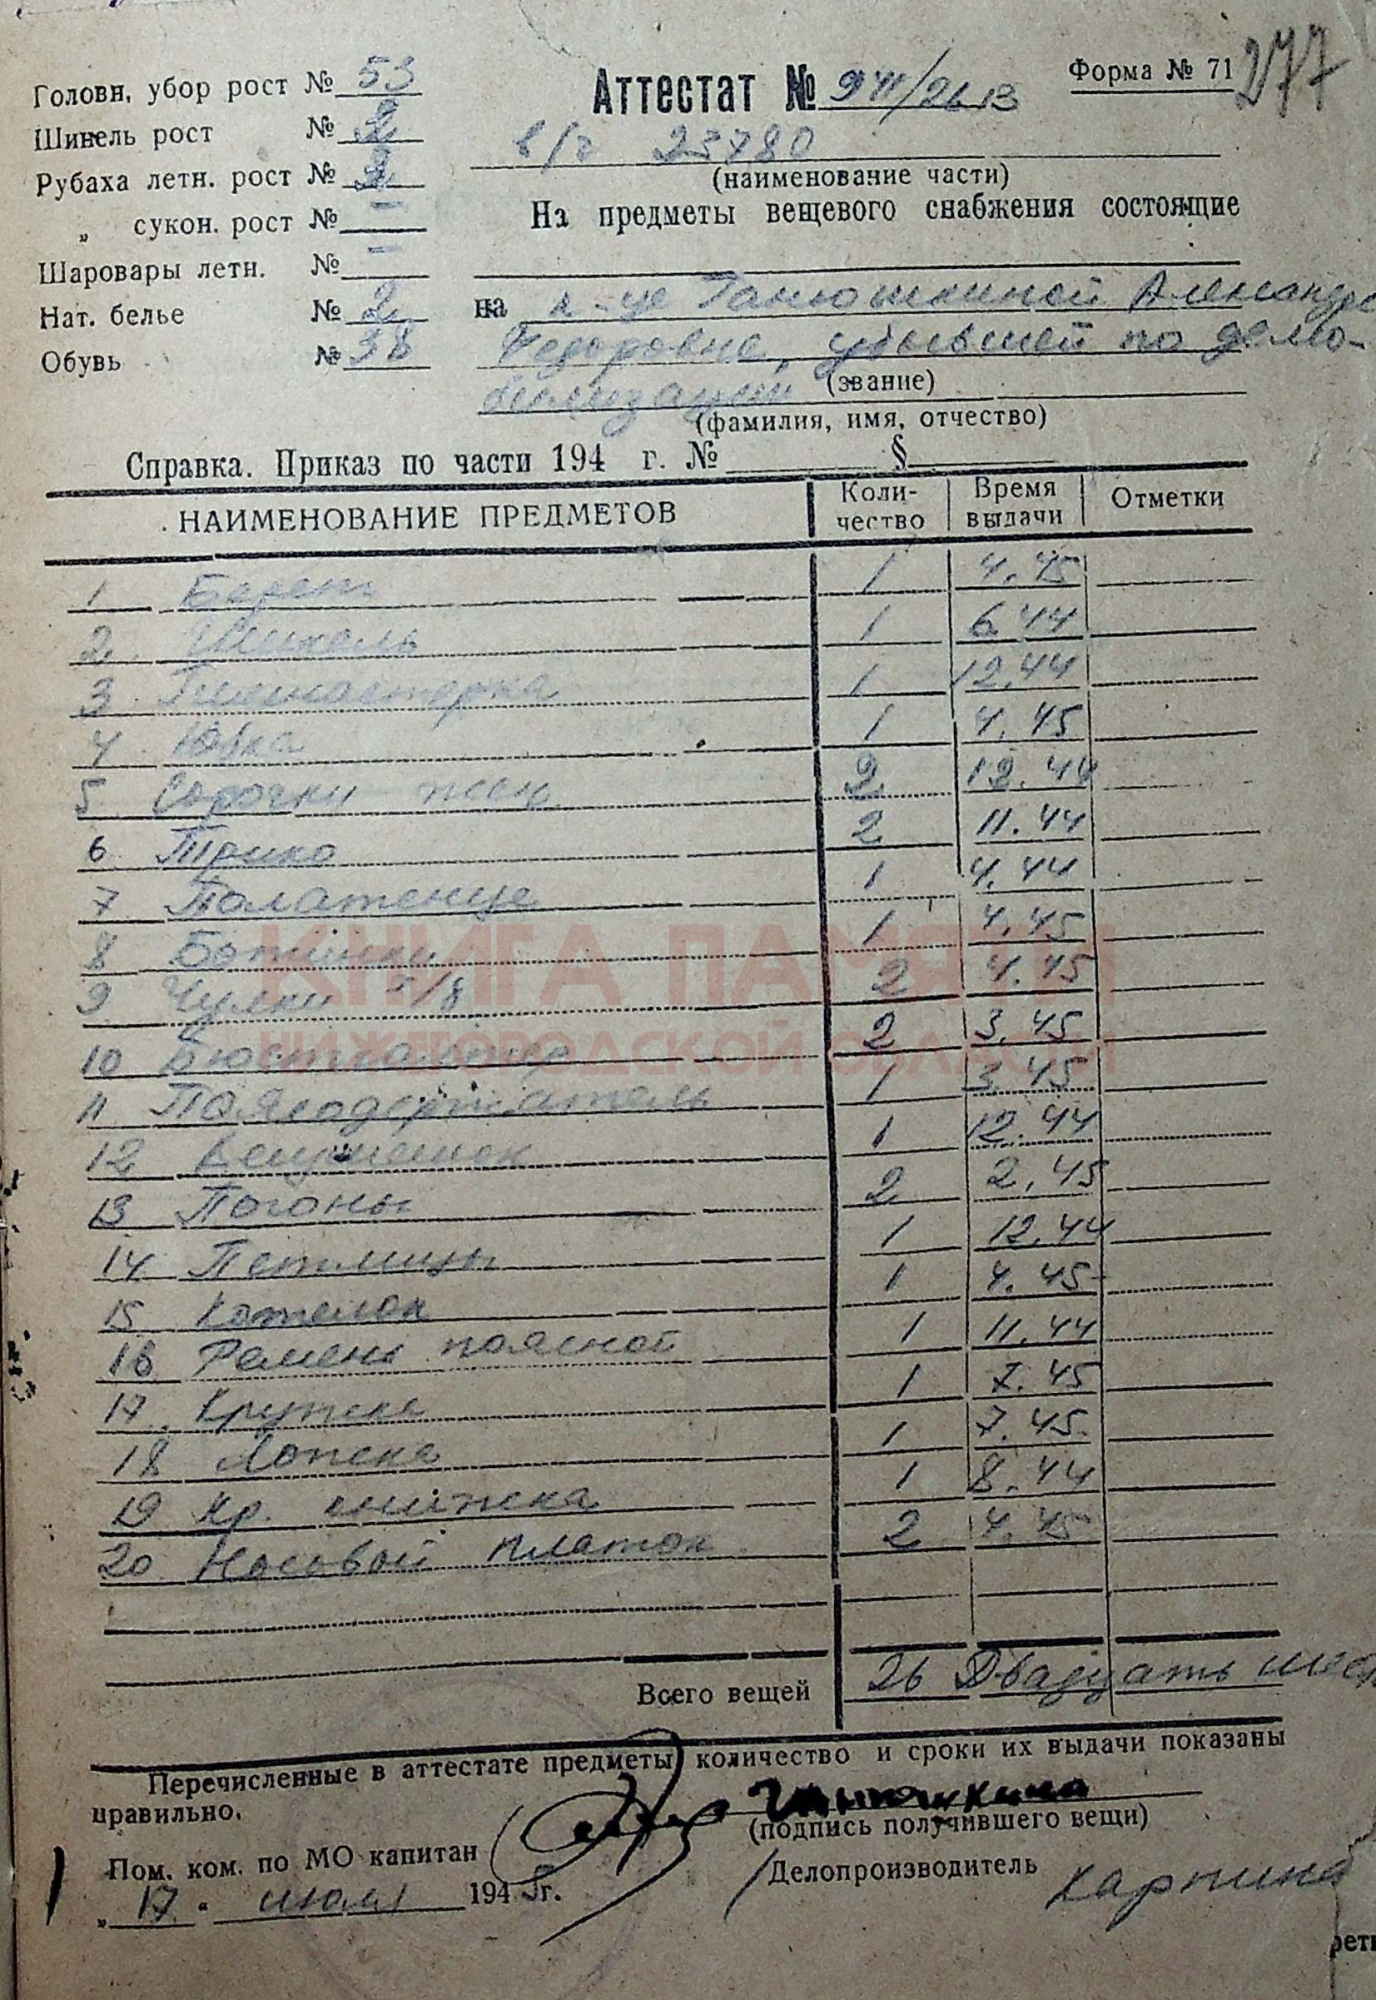 277
Форма № 71
Аттестат № 941/2613
в/ч 23780
(наименование части)
На предметы вещевого снабжения состоящие
Головн, убор рост № 53
Шинель рост № 2
Рубаха летн. рост № 2
„ сукон. рост № —
Шаровары летн. № —
Нат. белье № 2
Обувь № 38
на к-це Ганюшкиной Александре
Федоровне, убывшей по демо-
билизации
(звание)
(фамилия, имя, отчество)
Справка. Приказ по части 194 г. № §
НАИМЕНОВАНИЕ ПРЕДМЕТОВ Коли-чество Время выдачи Отметки
1 Берет 1 4.45
2 Шинель 1 6.44
3 Гимнастерка 1 12.44
4 Юбка 1 4.45
5 Сорочки жен 2 12.44
6 Трико 2 11.44
7 Полатенце 1 4.44
8 Ботинки 1 4.45
9 Чулки х/б 2 4.45
10 Бюстгалтер 2 3.45
11 Поясодержатель 1 3.45
12 1 12.44
13 Погоны 2 2.45
14 Петлицы 1 12.44
15 Котелок 1 4.45
16 Ремень поясной 1 11.44
17 Кружка 1 7.45
18 Ложка 1 7.45
19 Кр. книжка 1 8.44
20 Носовой платок 2 4.45
Всего вещей 26 Двадцать шест
Перечисленные в аттестате предметы количество и сроки их выдачи показаны
правильно.
Ганюшкина
(подпись получившего вещи)
Пом. ком. по МО капитан
Делопроизводитель Карпина
„17" июля 1945г.
КНИГА ПАМЯТИ
НИЖЕГОРОДСКОЙ ОБЛАСТИ